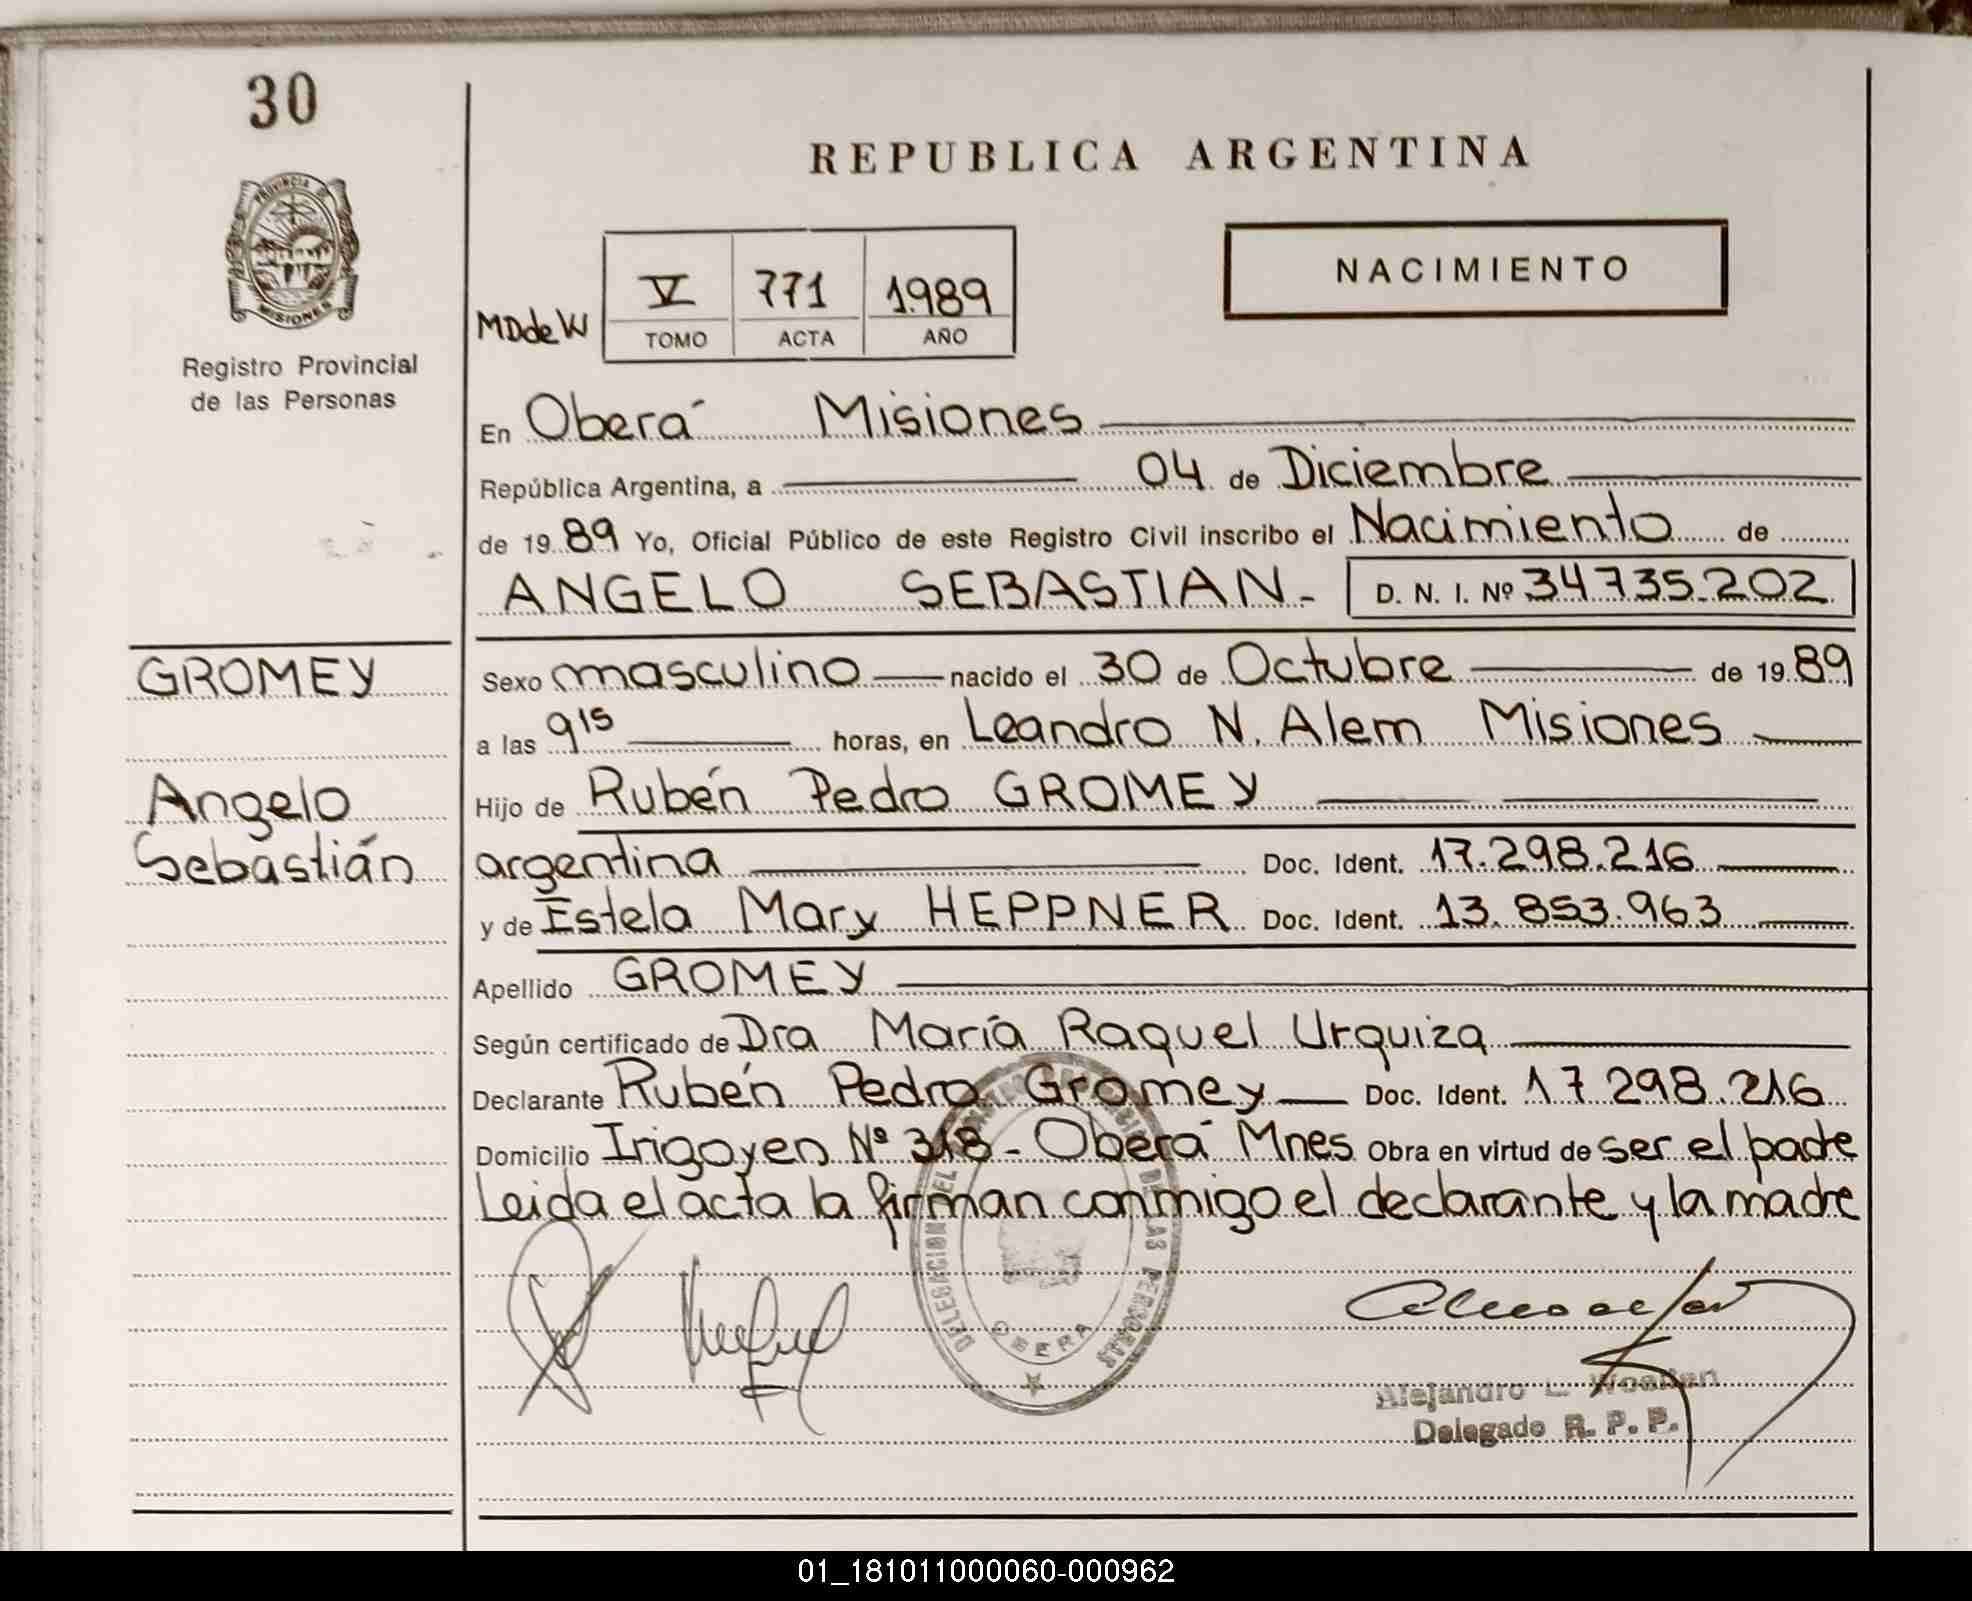 30
PROVINCIA DE
MISIONES
Registro Provincial
de las Personas
GROMEY
Angelo
Sebastián
REPUBLICA ARGENTINA
NACIMIENTO
MDdeW
V 771 1989
TOMO ACTA AÑO
En Oberá Misiones
República Argentina, a 04 de Diciembre
de 19 89 Yo, Oficial Público de este Registro Civil inscribo el Nacimiento de
ANGELO SEBASTIAN- D. N. I. Nº 34.735.202
Sexo masculino nacido el 30 de Octubre de 19 89
a las 9 15 horas, en Leandro N. Alem Misiones
Hijo de Rubén Pedro GROMEY
argentina Doc. Ident. 17.298.216
y de Estela Mary HEPPNER Doc. Ident. 13.853.963
Apellido GROMEY
Según certificado de Dra María Raquel Urquiza
Declarante Rubén Pedro Gromey Doc. Ident. 17 298.216
Domicilio Irigoyen Nº 318 - Oberá Mnes Obra en virtud de ser el padre
Leida el acta la firman conmigo el declarante y la madre
DELEGACION DEL DE LAS PERSONAS
OBERA
Alejandro L.
Delegado R. P. P.
01_181011000060-000962